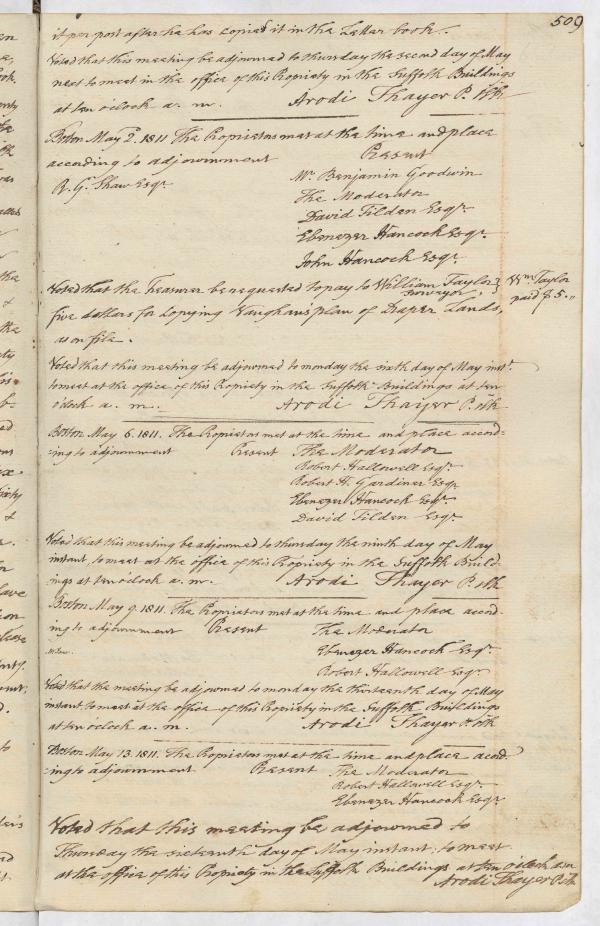 509
it per post after he has Copied it in the Letter book.
Voted that this meeting be adjourned to thursday the second day of May
next to meet in the office of this Propriety in the Suffolk Buildings
at ten oClock a. m. Arodi Thayer P. Clk
Boston May 2. 1811 The Proprietors met at the time and place
according to adjournment Present
R. G. Shaw Esqr. Mr. Benjamin Goodwin
The Moderator
David Tilden Esqr.
Ebenezer Hancock Esqr.
John Hancock Esqr.
Voted that the Treasurer be requested to pay to William Taylor Wm. Taylor
Surveyor paid $5.,,
five dollars for Copying Vaughan's plan of Draper Lands,
as on file.
Voted that this meeting be adjourned to monday the sixth day of May inst.
to meet at the office of this Propriety in the Suffolk Buildings at ten
o'clock a. m. Arodi Thayer P. Clk
Boston May 6. 1811. The Proprietors met at the time and place accord-
ing to adjournment Present The Moderator
Robert Hallowell Esqr.
Robert H. Gardiner Esqr
Ebenezer Hancock Esqr.
David Tilden Esqr.
Voted that this meeting be adjourned to thursday the ninth day of May
instant, to meet at the office of this Propriety in the Suffolk Build-
ings at ten o'clock a. m. Arodi Thayer P. Clk
Boston May 9. 1811. The Proprietors met at the time and place accord-
ing to adjournment Present The Moderator
Ebenezer Hancock Esqr.
Robert Hallowell Esqr
Voted that the meeting be adjourned to monday the thirteenth day of May
instant, to meet at the office of this Propriety in the Suffolk Buildings
at ten o'clock a. m. Arodi Thayer P. Clk
Boston May 13. 1811. The Proprietors met at the time and place accord-
ing to adjournment Present The Moderator
Robert Hallowell Esqr.
Ebenezer Hancock Esqr
Voted that this meeting be adjourned to
Thursday the sixteenth day of May instant, to meet
at the office of this Propriety in the Suffolk Buildings at ten o'clock a m
Arodi Thayer P. Clk